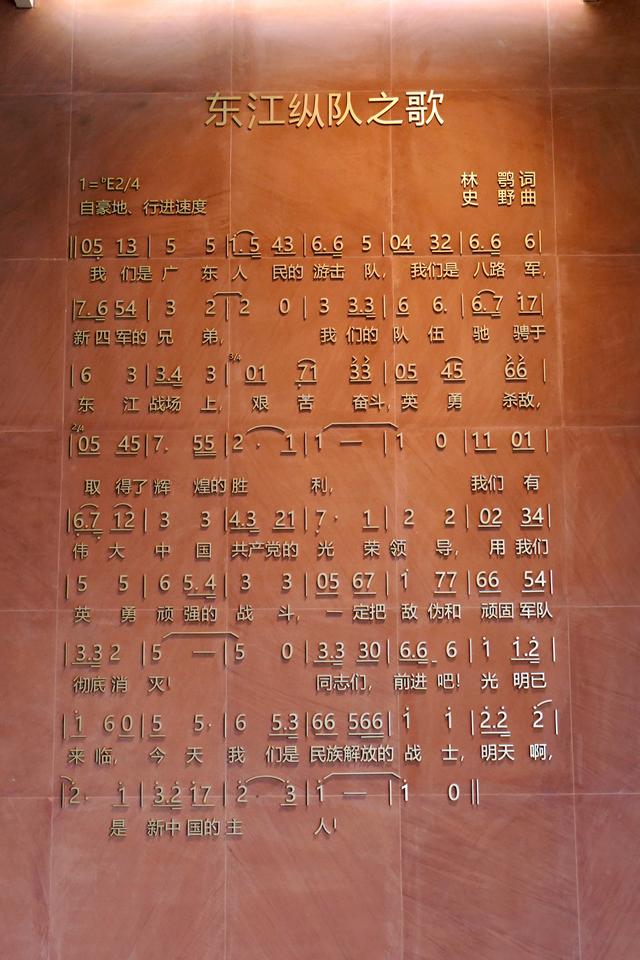 东江纵队之歌
1=ᵇE2/4
林 鹗 词
自豪地、行进速度
史 野 曲
‖05 13 | 5 5 | 1.5 43 | 6.6 5 | 04 32 | 6.6 6 |
我 们是 广 东 人 民的 游击 队， 我们是 八路 军，
| 7.6 54 | 3 2 | 2 0 | 3 3.3 | 6 6. | 6.7 17 |
新四军的 兄 弟， 我 们的 队 伍 驰 骋于
3/4
| 6 3 | 3.4 3 | 01 71 33 | 05 45 66 |
东 江 战场 上， 艰 苦 奋斗， 英 勇 杀敌，
2/4
| 05 45 | 7. 55 | 2· 1 | 1 — | 1 0 | 11 01 |
取 得了 辉 煌的 胜 利， 我们 有
| 6.7 12 | 3 3 | 4.3 21 | 7· 1 | 2 2 | 02 34 |
伟 大 中 国 共产党的 光 荣 领 导， 用 我们
| 5 5 | 6 5.4 | 3 3 | 05 67 | 1 77 | 66 54 |
英 勇 顽 强的 战 斗， 一 定把 敌 伪和 顽固 军队
| 3.3 2 | 5 — | 5 0 | 3.3 30 | 6.6 6 | 1 1.2 |
彻底 消 灭！ 同志们， 前进 吧！ 光 明已
| 1 60 | 5 5· | 6 5.3 | 66 566 | 1 1 | 2.2 2 |
来 临， 今 天 我 们是 民族解放的 战 士， 明天 啊，
| 2· 1 | 3.2 17 | 2· 3 | 1 — | 1 0 ‖
是 新中 国的 主 人！